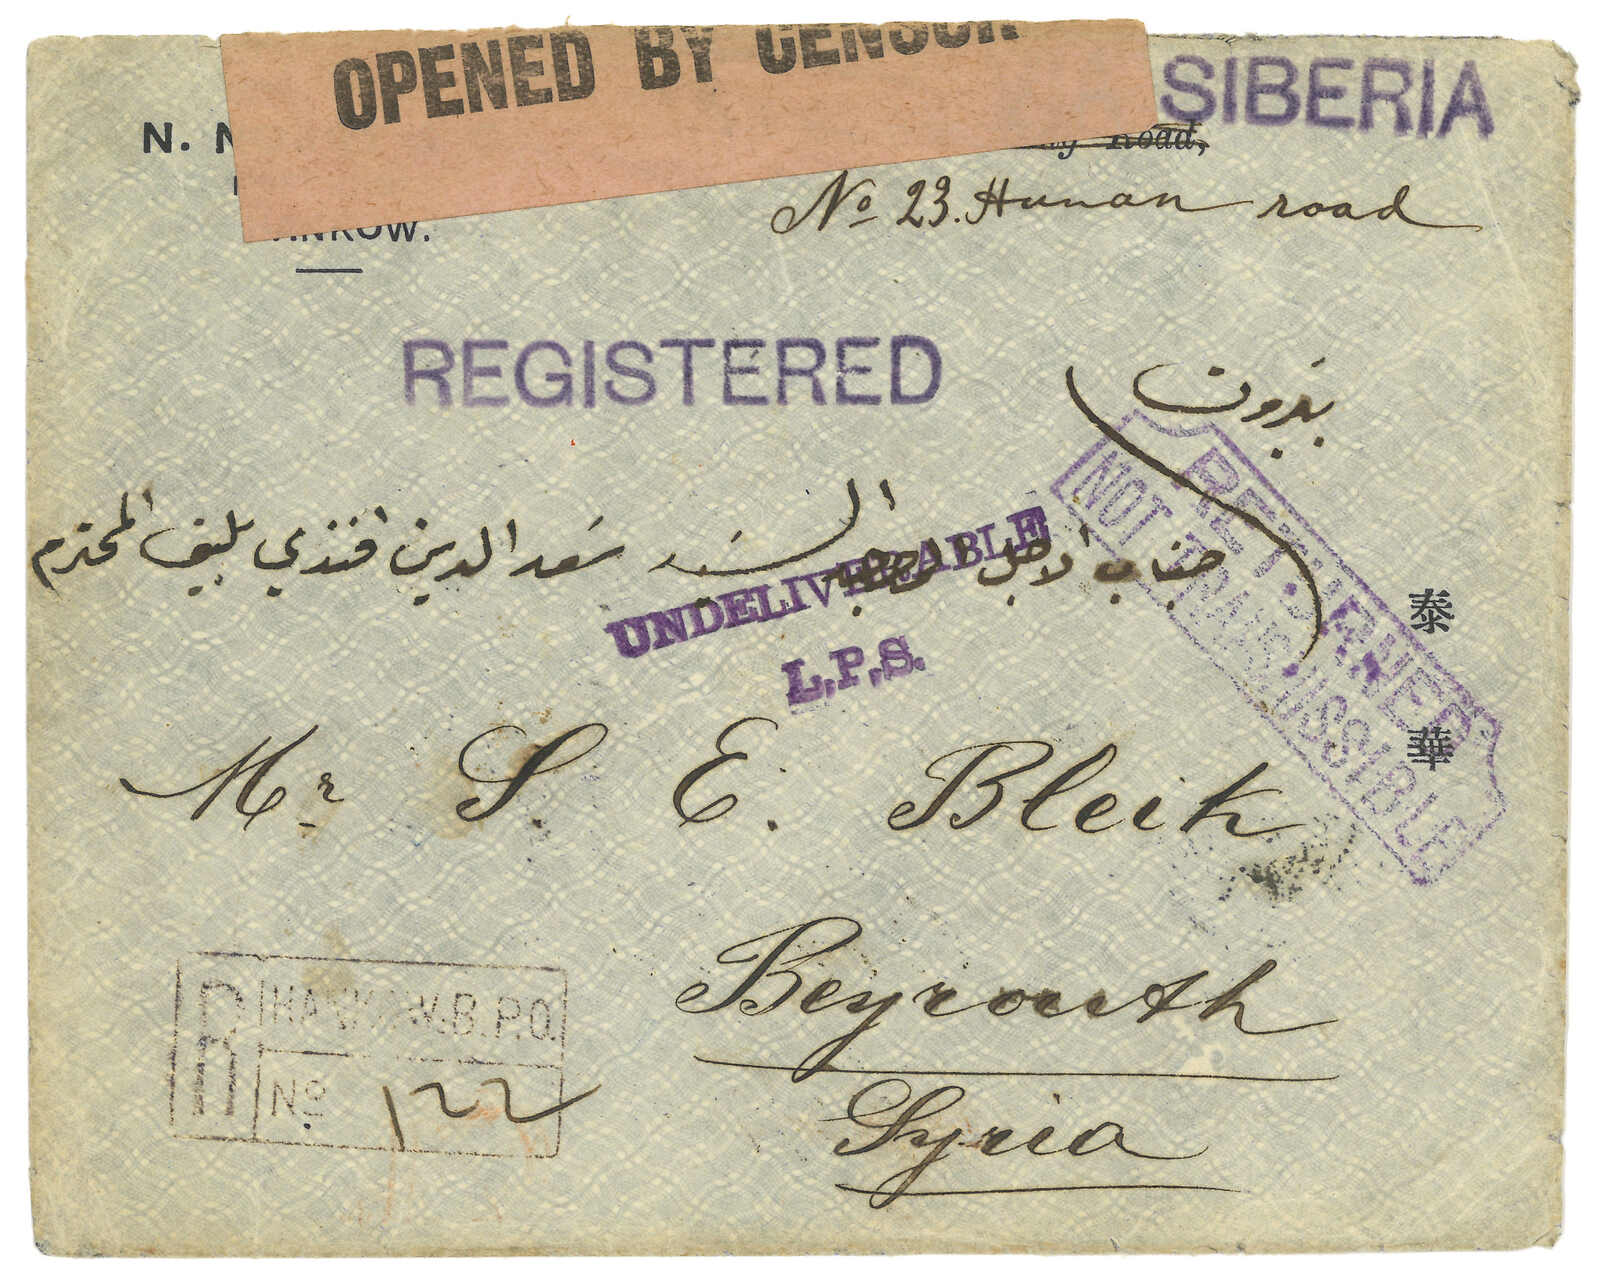 OPENED BY CENSOR
SIBERIA
N. N
Road,
NKOW.
No 23. Hunan road
REGISTERED
بيروت
جناب الاجل السيد سعد الدين افندي بليق المحترم
UNDELIVERABLE
L.P.S.
RETURNED
NOT TRANSMISSIBLE
泰
華
Mr S. E. Bleik
Beyrouth
Syria
R
HANKOW.B.P.O.
No 122